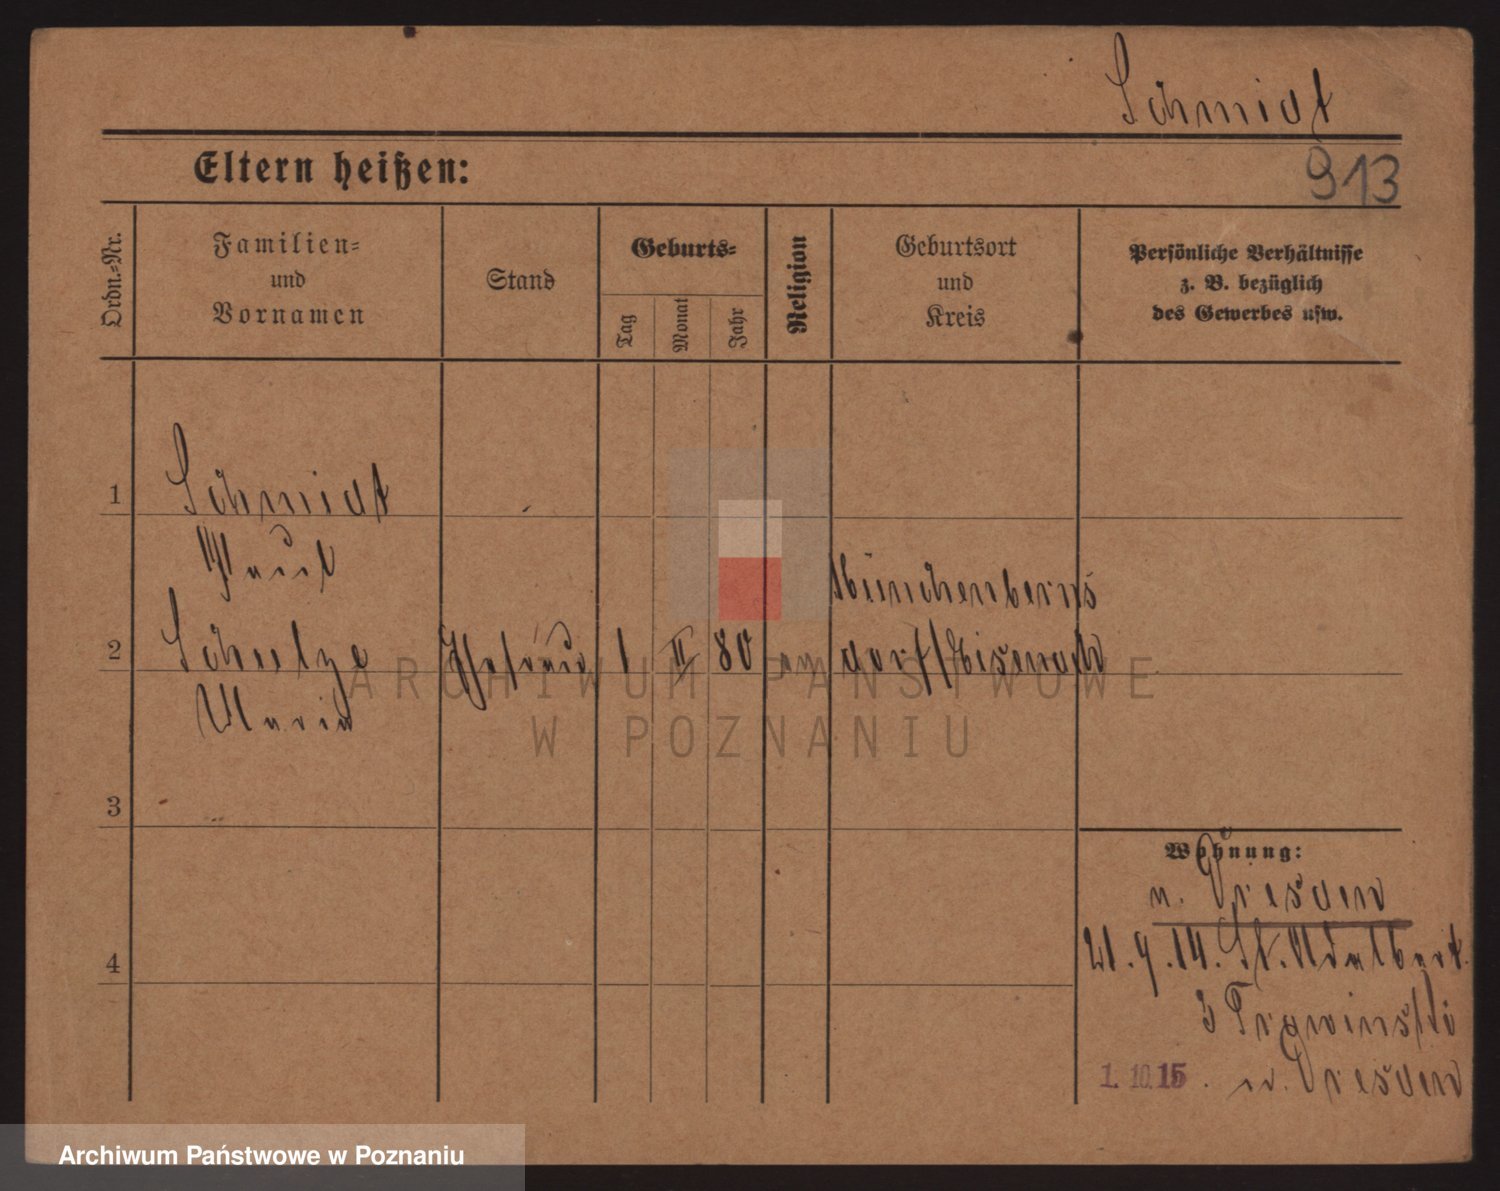 Schmidt
913
Eltern heißen:
Ordn.=Nr.
Familien=
und
Vornamen
Stand
Geburts=
Tag
Monat
Jahr
Religion
Geburtsort
und
Kreis
Persönliche Verhältnisse
z. B. bezüglich
des Gewerbes usw.
1
Schmidt
Paul
2
Schulze
Maria
Ehefrau
1
II
80
ev
Münchenberns
dorf/Eisenach
3
4
Wohnung:
n. Dresden
21.9.14. St. Adalbert.
3
1.10.15. n. Dresden
ARCHIWUM PAŃSTWOWE
W POZNANIU
Archiwum Państwowe w Poznaniu